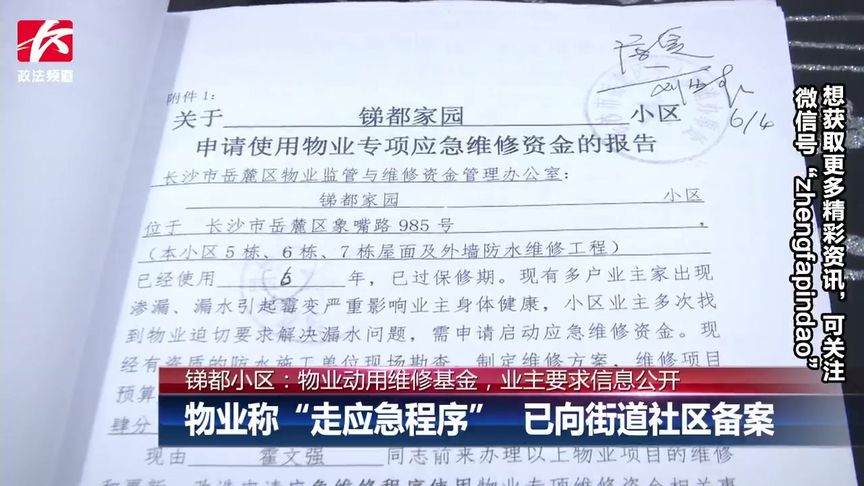 政法频道
附件1:
关于 锑都家园 小区
申请使用物业专项应急维修资金的报告
长沙市岳麓区物业监管与维修资金管理办公室:
锑都家园 小区
位于 长沙市岳麓区象嘴路985号 ,
(本小区5栋、6栋、7栋屋面及外墙防水维修工程)
已经使用 6 年,已过保修期。现有多户业主家出现
渗漏、漏水引起霉变严重影响业主身体健康,小区业主多次找
到物业迫切要求解决漏水问题,需申请启动应急维修资金。现
经有资质的防水施工单位现场勘查,制定维修方案,维修项目
预算
肆分
现由 霍文强 同志前来办理以上物业项目的维修
6/4
想获取更多精彩资讯,可关注
微信号“zhengfapindao”
锑都小区:物业动用维修基金,业主要求信息公开
物业称“走应急程序” 已向街道社区备案